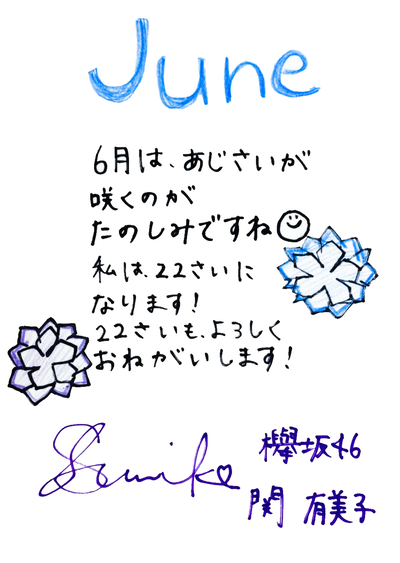 June
6月は、あじさいが
咲くのが
たのしみですね
私は、22さいに
なります!
22さいも、よろしく
おねがいします!
Sumiko
欅坂46
関 有美子